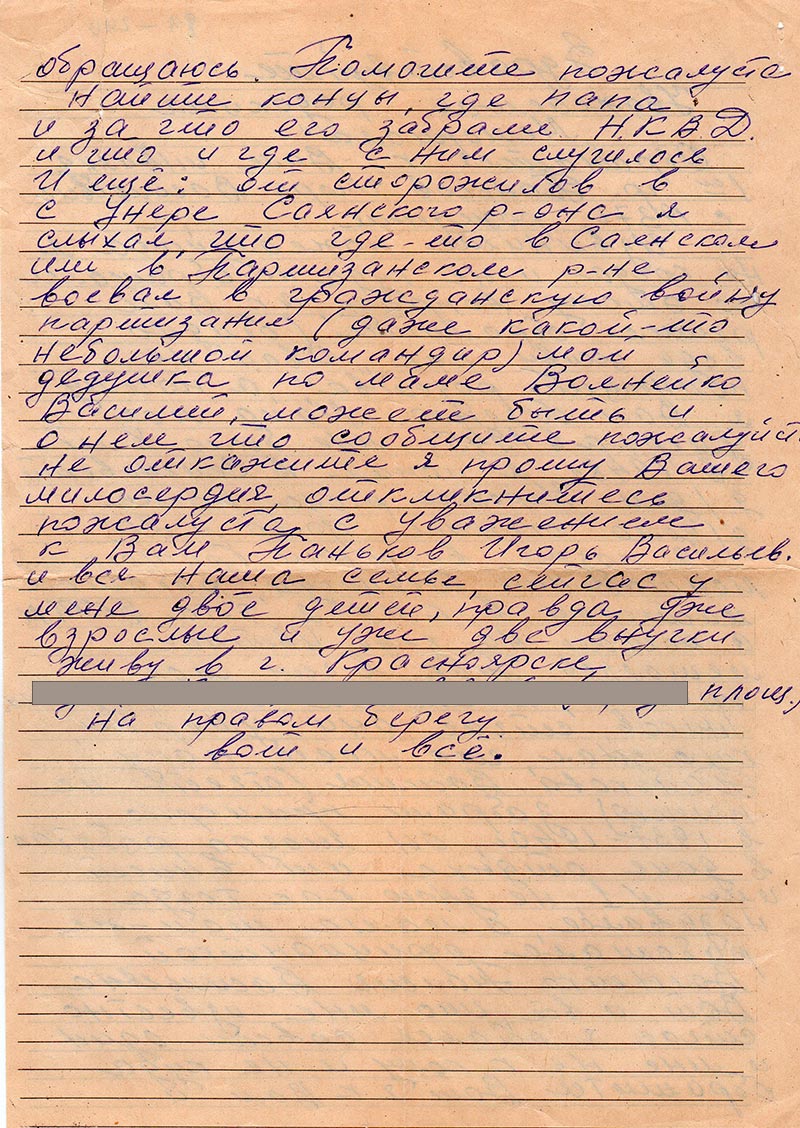 обращаюсь. Помогите пожалуста
найти концы, где папа
и за што его забрали Н.К.В.Д.
и што и где с ним случилось
И ещё: от сторожилов в
с Унере Саянского р-она я
слыхал, што где-то в Саянском
или в Партизанском р-не
воевал в гражданскую войну
партизанил (даже какой-то
небольшой командир) мой
дедушка по маме Волнейко
Василий, можеть быть и
о нем што сообщите пожалуйст.
не откажите я прошу Вашего
милосердия, откликнитесь
пожалуста, с уважением
к Вам Паньков Игорь Васильев.
и вся наша семья, сейчас у
меня двое детей, правда уже
взрослые и уже две внучки
живу в г. Красноярске,
площ.
на правом берегу
вот и всё.